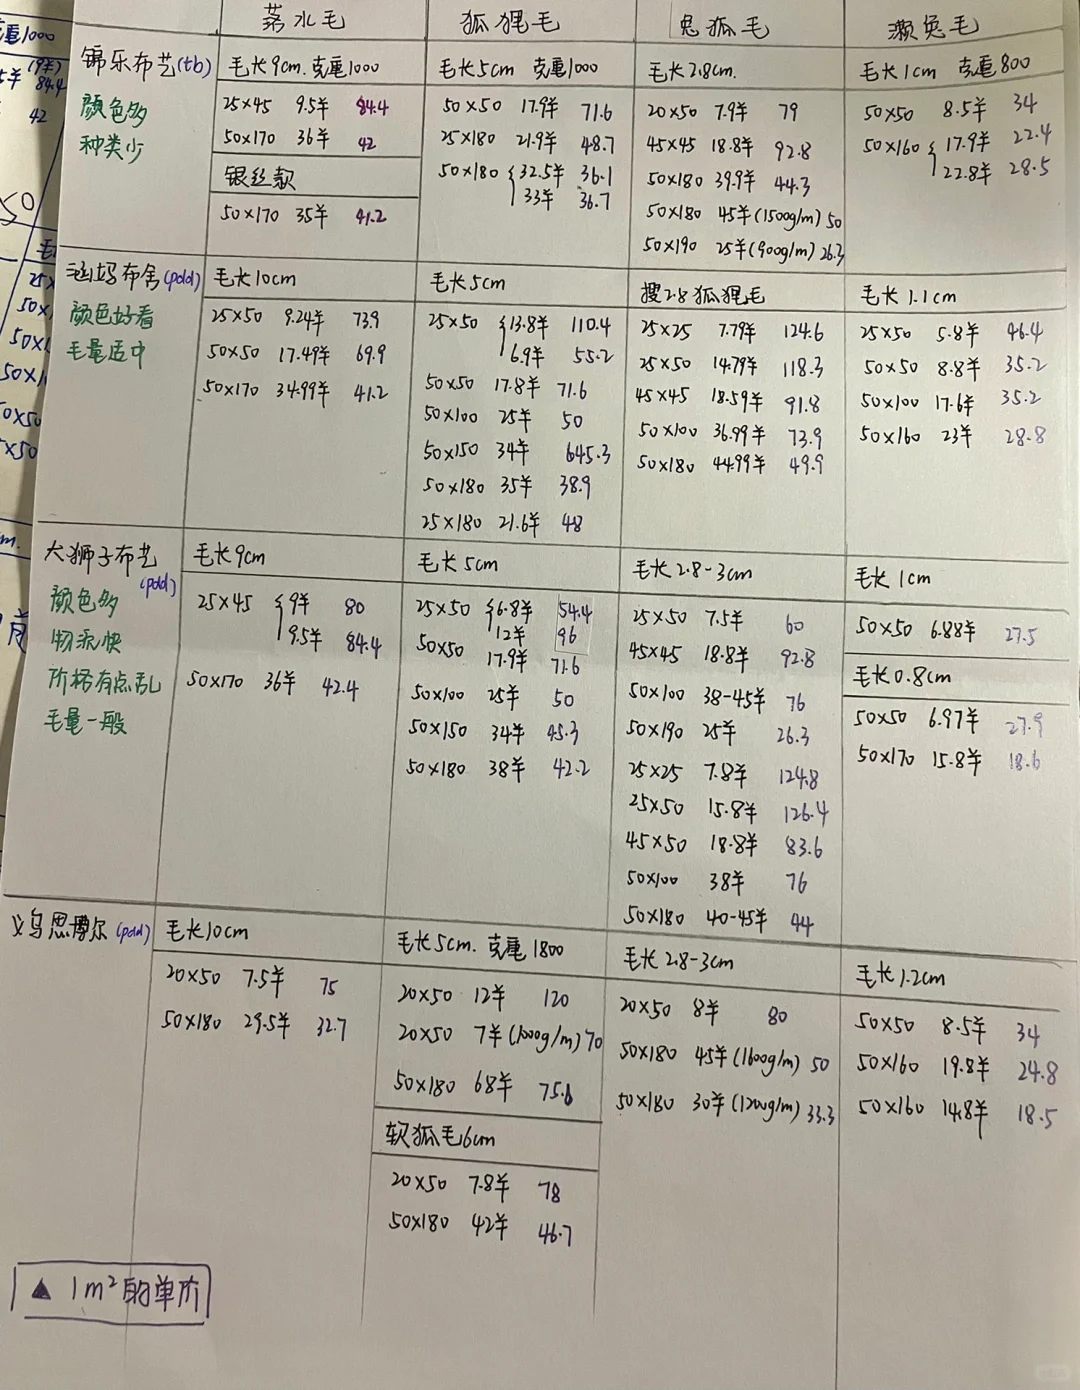 滩水毛 狐狸毛 兔狐毛 濑兔毛
锦乐布艺(tb) 毛长9cm. 克重1000 毛长5cm 克重1000 毛长2.8cm. 毛长1cm 克重800
颜色多
种类少
25×45 9.5羊 84.4
50×170 36羊 42
银丝款
50×170 35羊 41.2
50×50 17.9羊 71.6
25×180 21.9羊 48.7
50×180 {32.5羊 36.1
33羊 36.7
20×50 7.9羊 79
45×45 18.8羊 92.8
50×180 39.9羊 44.3
50×180 45羊(1500g/m) 50
50×190 25羊(900g/m) 26.3
50×50 8.5羊 34
50×160 {17.9羊 22.4
22.8羊 28.5
涵妈布舍(pdd) 毛长10cm 毛长5cm 搜2.8狐狸毛 毛长1.1cm
颜色好看
毛量适中
25×50 9.24羊 73.9
50×50 17.49羊 69.9
50×170 34.99羊 41.2
25×50 {13.8羊 110.4
6.9羊 55.2
50×50 17.8羊 71.6
50×100 25羊 50
50×150 34羊 645.3
50×180 35羊 38.9
25×180 21.6羊 48
25×25 7.79羊 124.6
25×50 14.79羊 118.3
45×45 18.59羊 91.8
50×100 36.99羊 73.9
50×180 44.99羊 49.9
25×50 5.8羊 46.4
50×50 8.8羊 35.2
50×100 17.6羊 35.2
50×160 23羊 28.8
大狮子布艺(pdd) 毛长9cm 毛长5cm 毛长2.8-3cm 毛长1cm
颜色多
物流快
价格有点乱
毛量一般
25×45 {9羊 80
9.5羊 84.4
50×170 36羊 42.4
25×50 {6.8羊 54.4
12羊 96
50×50 17.9羊 71.6
50×100 25羊 50
50×150 34羊 45.3
50×180 38羊 42.2
25×50 7.5羊 60
45×45 18.8羊 92.8
50×100 38-45羊 76
50×190 25羊 26.3
25×25 7.8羊 124.8
25×50 15.8羊 126.4
45×50 18.8羊 83.6
50×100 38羊 76
50×180 40-45羊 44
50×50 6.88羊 27.5
毛长0.8cm
50×50 6.97羊 27.9
50×170 15.8羊 18.6
义乌思博尔(pdd) 毛长10cm 毛长5cm. 克重1800 毛长2.8-3cm 毛长1.2cm
20×50 7.5羊 75
50×180 29.5羊 32.7
20×50 12羊 120
20×50 7羊(1000g/m) 70
50×180 68羊 75.6
软狐毛6cm
20×50 7.8羊 78
50×180 42羊 46.7
20×50 8羊 80
50×180 45羊(1600g/m) 50
50×180 30羊(1200g/m) 33.3
50×50 8.5羊 34
50×160 19.8羊 24.8
50×160 14.8羊 18.5
▲ 1m²的单价